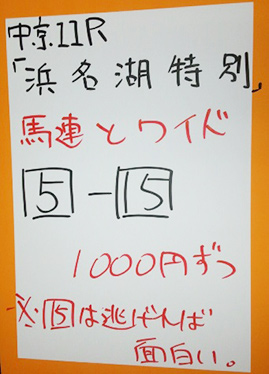 中京11R
「浜名湖特別」
馬連とワイド
5-15
1000円ずつ
※15は逃げれば
面白い。